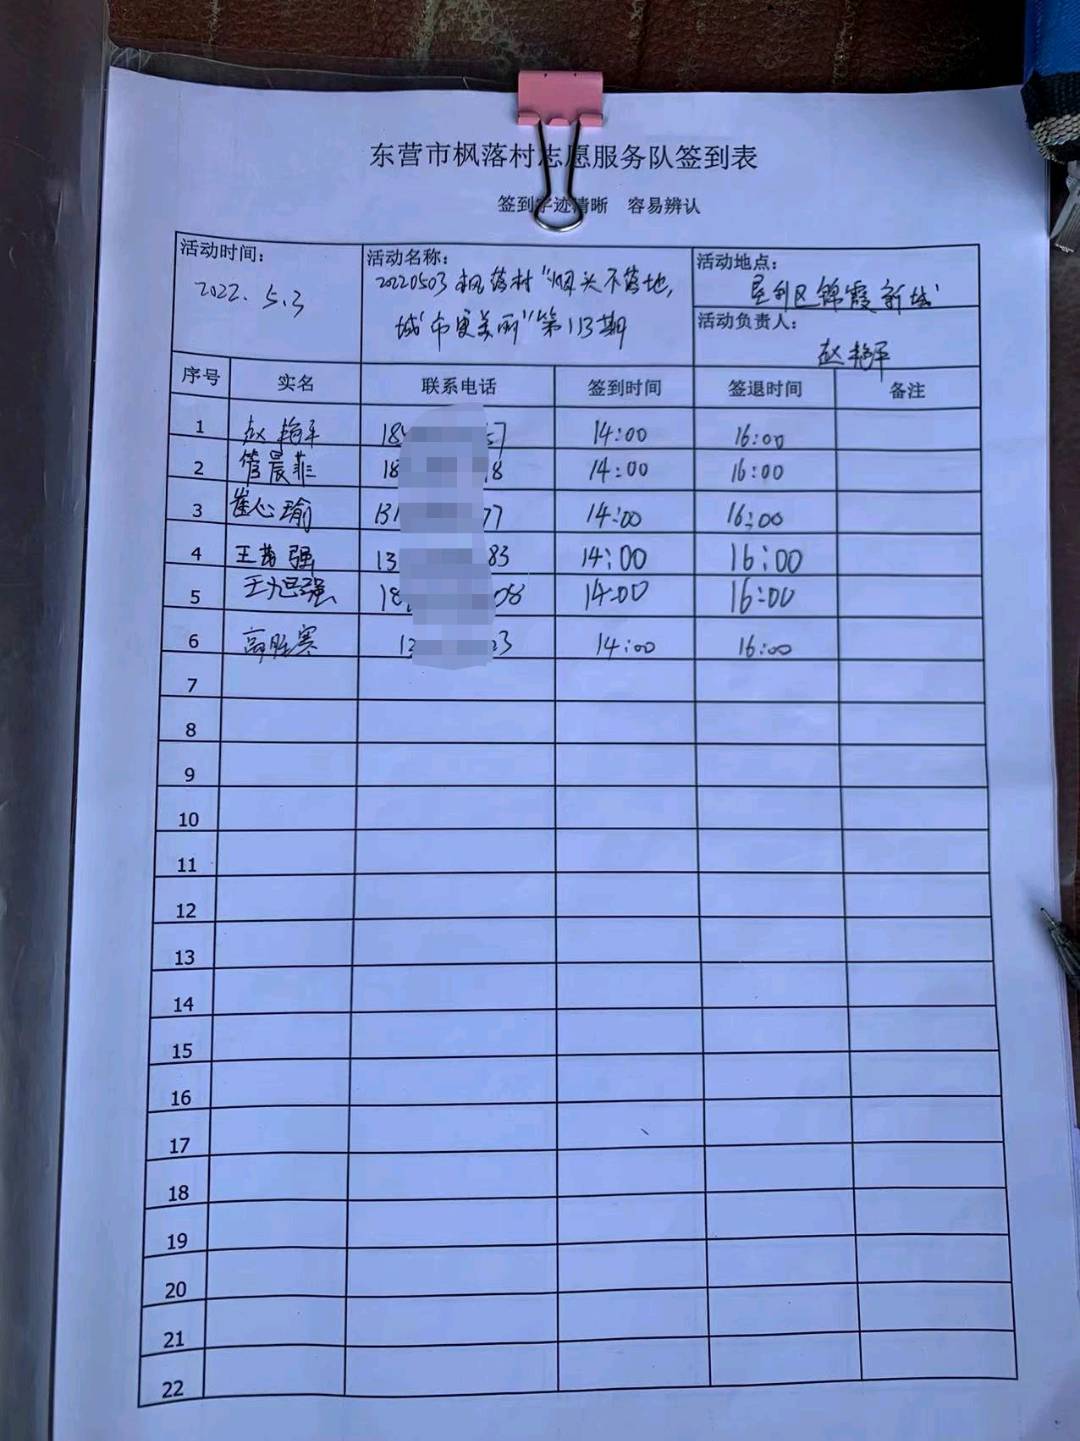 东营市枫落村志愿服务队签到表
签到字迹清晰 容易辨认
活动时间: 2022.5.3
活动名称: 20220503枫落村"烟头不落地,
城市更美丽"第113期
活动地点: 垦利区锦霞新城
活动负责人: 赵艳平
序号 实名 联系电话 签到时间 签退时间 备注
1 赵艳平 14:00 16:00
2 管晨菲 14:00 16:00
3 崔心瑜 14:00 16:00
4 王 强 14:00 16:00
5 王旭强 14:00 16:00
6 高胜寒 14:00 16:00
7
8
9
10
11
12
13
14
15
16
17
18
19
20
21
22